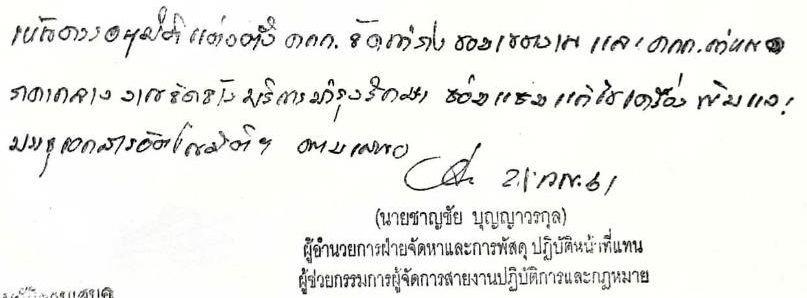 เห็นควรอนุมัติแต่งตั้ง คกก. จัดทำร่างขอบเขตงาน และ คกก. กำหนด
ราคากลาง งานจัดจ้างบริการบำรุงรักษา ซ่อมแซมแก้ไขเครื่องพิมพ์และ
บรรจุเอกสารอัตโนมัติฯ ตามเสนอ
21 ก.พ. 61
(นายชาญชัย บุญญาวรกุล)
ผู้อำนวยการฝ่ายจัดหาและการพัสดุ ปฏิบัติหน้าที่แทน
ผู้ช่วยกรรมการผู้จัดการสายงานปฏิบัติการและกฎหมาย